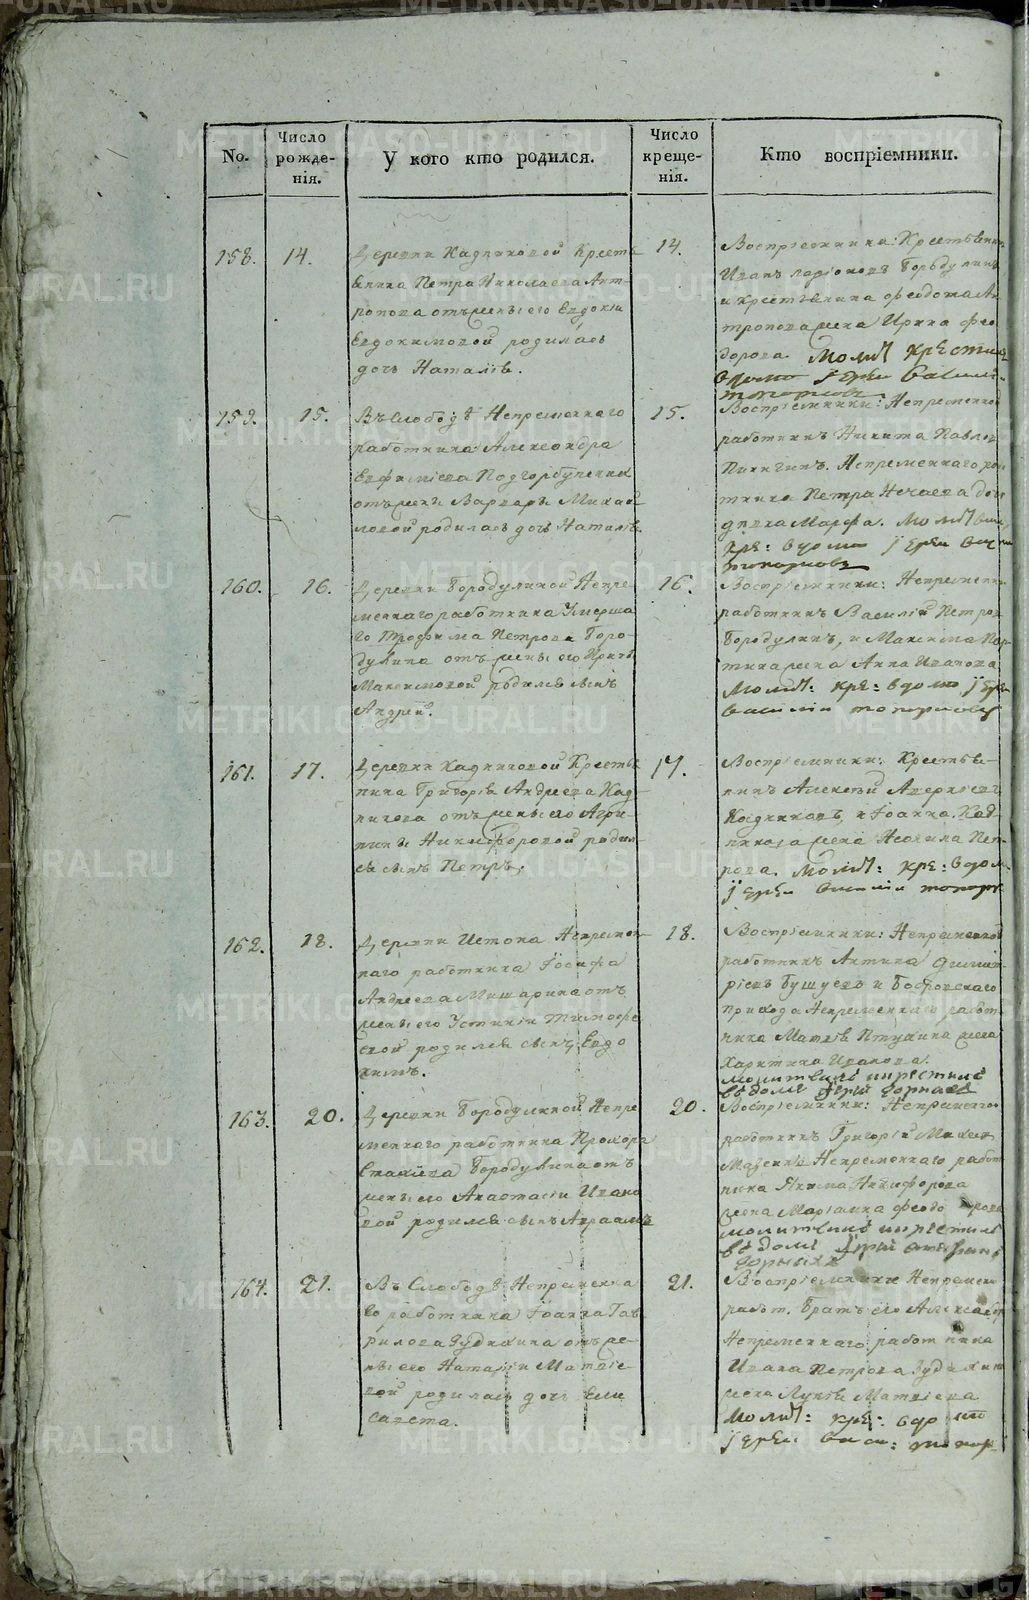 No.
Число рожде-нія.
У кого кто родился.
Число креще-нія.
Кто воспріемники.
158.
14.
Деревни Кадниковой Кресть
янина Петра Николаева Ант-
ропова отъ жены его Евдокіи
Евдокимовой родилась
дочь Наталія.
14.
Воспріемники: Крестьянинъ
Иванъ Ларіоновъ Бородулинъ
и крестьянина Феодота Ан
тропова жена Ирина Фео
дорова. Молит крестил
в домъ іерей Васили
топорковъ
159.
15.
Въ Слободѣ Непременнаго
работника Александра
Евфиміева Подгорбунскихъ
отъ жены Варвары Михай
ловой родилась дочь Наталія.
15.
Воспріемники: Непременной
работникъ Никита Павлов
Пинигинъ. Непременнаго ра
тника Петра Нечаева доч
девка Марфа. Молит
кре: в доме іерей Васи
топорковъ
160.
16.
Деревни Бородулиной Непре
меннаго работника Умерша
го Трофима Петрова Боро-
дулина отъ жены его Ирины
Максимовой родился сынъ
Андрей.
16.
Воспріемники: Непременн
работникъ Василій Петров
Бородулинъ, и Максима
жена Анна Иванова
Молит: кре: в доме іерей
василіи топорковъ
161.
17.
Деревни Кадниковой Кресть
нина Григорія Андреева Кад-
никова отъ жены его Агри-
пины Никифоровой родил-
ся сынъ Петръ.
17.
Воспріемники: Крестья-
нинъ Алексѣй Аверкіевъ
Кадниковъ, и Іоанна Кад-
никова жена Неонила Пет-
рова. Молит: кре: в дом
іерей василіи топорк
162.
18.
Деревни Истока Непремен-
наго работника Іосифа
Андреева Мишарина отъ
жены его Устиніи Тимофе
евой родился сынъ Евдо
кимъ.
18.
Воспріемники: Непременной
работникъ Антипа Димит-
ріевъ Бушуевъ и Бобровскаго
прихода Непременнаго работ-
ника Матвѣя Птухина жена
Харитина Иванова.
молитвилъ и крестилъ
въ доме іерей
163.
20.
Деревни Бородулиной Непре
меннаго работника Прохора
Бородулина отъ
жены его Анастасіи Ивано
вой родился сынъ Авраамъ
20.
Воспріемники: Непременного
работникъ Григорій
Непременнаго работ
ника Якима Никифорова
жена Маріамна Феодо рова
молитвилъ и крестилъ
въ доме іерей
164.
21.
Въ Слободѣ Непременна
го работника Іоанна Гав
рилова Зудихина отъ же-
ны его Наталіи Матвіе
вой родилась дочь Ели
савета.
21.
Воспріемники Непремен
работ. братъ его Александр
Непременнаго работника
Ивана Петрова Зудихина
жена Лукія Матвіева
Молит: кре: в до мѣ
іерей васи: топор
METRIKI.GASO-URAL.RU